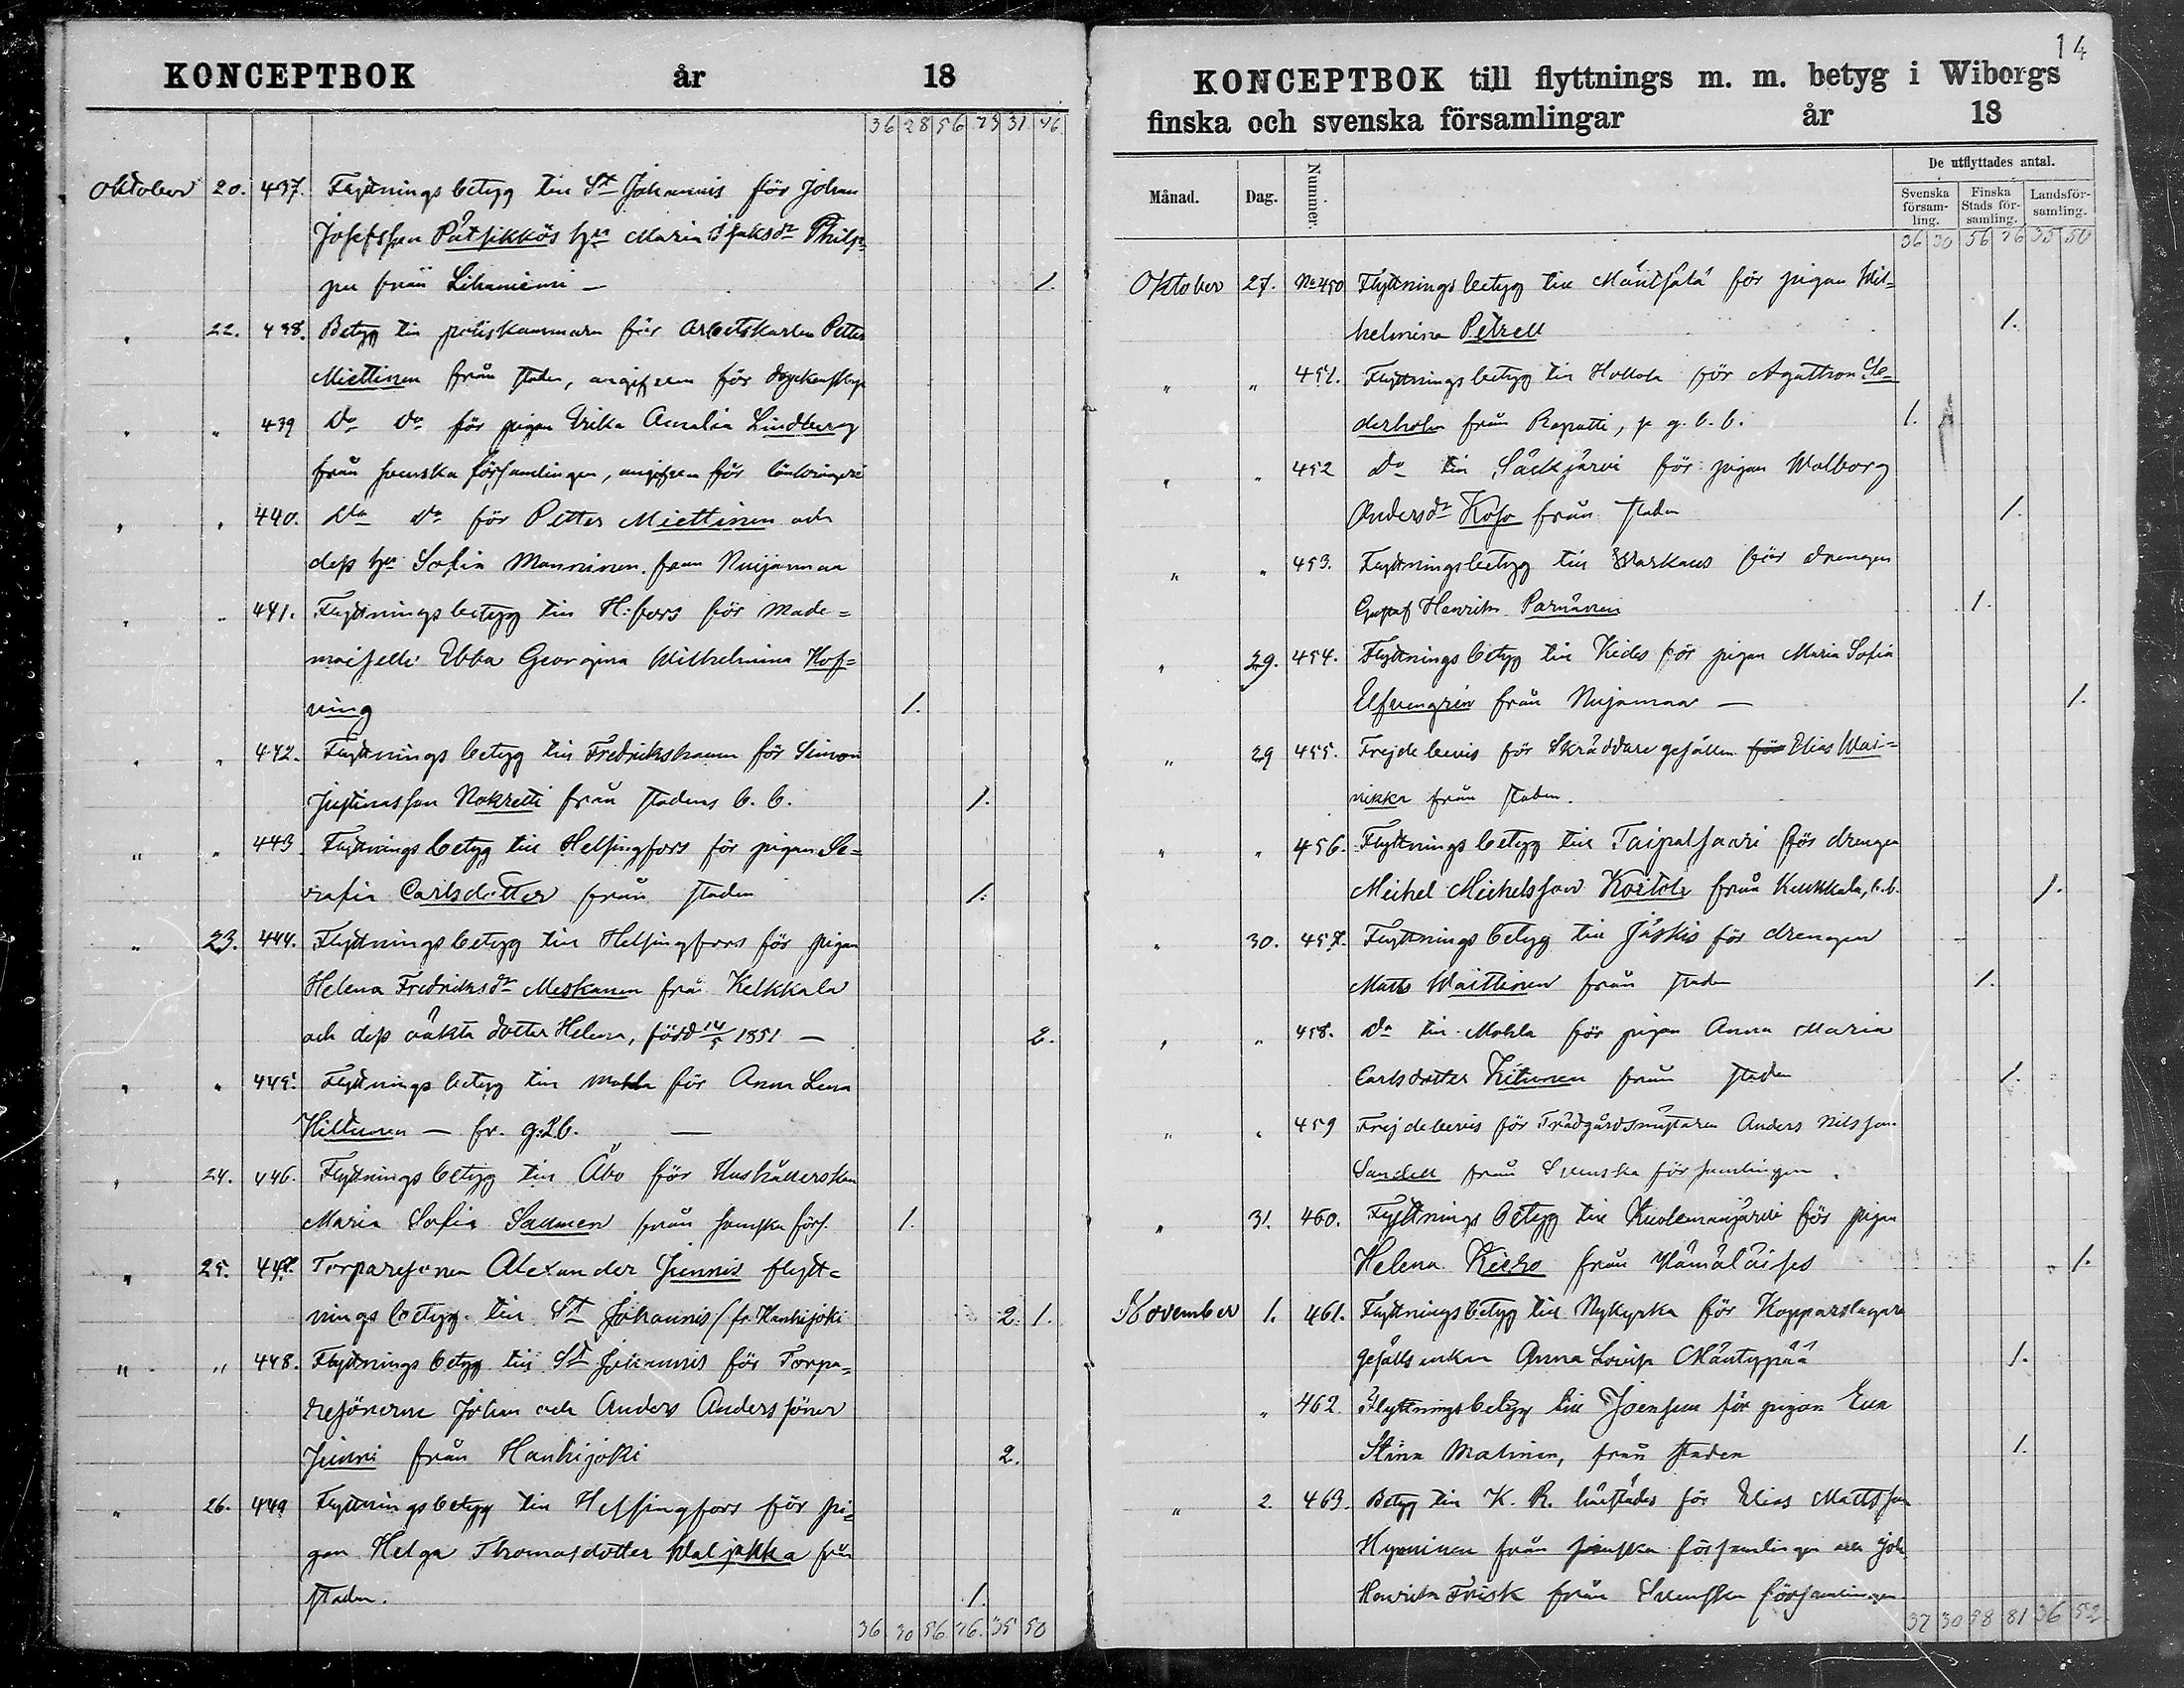 KONCEPTBOK år 18
36 28 56 73 31 46
Oktober 20. 437. Flyttnings betyg till St Johannis för Johan
Josefsson Pätsikkös hu Maria Isaksdr Philip-
pu från Lihaniemi — 1.
" 22. 438. Betyg till poliskammaren för Arbetskarlen Petter
Miettinen från staden, angifven för
" " 439 do do för pigan Erika Amalia Lindberg
från svenska församlingen, angifven för
" " 440. do do för Petter Miettinen och
dess hu Sofia Manninen från Nuijamaa
" " 441. Flyttnings betyg till H:fors för Made=
moiselle Ebba Georgina Wilhelmina Hof=
ving 1.
" " 442. Flyttnings betyg till Fredrikshamn för Simon
Justinasson Nokretti från stadens b. b. 1.
" " 443 Flyttnings betyg till Helsingfors för pigan Se=
rafia Carlsdotter från staden 1.
" 23. 444. Flyttnings betyg till Helsingfors för pigan
Helena Fredriksdr Meskanen från Kelkkala
och dess oäkta dotter Helena, född 14/5 1851 — 2.
" " 445. Flyttnings betyg till Mohla för Anna Lena
Hiltunen — fr. g. b. —
" 24. 446. Flyttnings betyg till Åbo för Hushållerskan
Maria Sofia Sadmen från svenska förs. 1.
" 25. 447. Torparesonen Alexander Junnis flytt=
nings betyg till St Johannis / fr. Hanhijoki 2. 1.
" " 448. Flyttnings betyg till St Johannis för Torpa=
resönerne Johan och Anders Anderssöner
Junni från Hanhijoki 2.
" 26. 449 Flyttnings betyg till Helsingfors för pi=
gan Helga Thomasdotter Waljakka från
staden. 1.
36 30 56 76. 35 50
14
KONCEPTBOK till flyttnings m. m. betyg i Wiborgs
finska och svenska församlingar år 18
Månad. Dag. Nummer. De utflyttades antal.
Svenska församling. Finska Stads församling. Landsförsamling.
36 30 56 76 35 50
Oktober 27. No 450 Flyttnings betyg till Mäntsälä för pigan Wil=
helmina Petrell 1.
" " 451. Flyttnings betyg till Hollola för Agathon Ce=
derholm från Rapatti, p g. b. b. 1.
" " 452 do till Säckjärvi för pigan Walborg
Andersdr Koso från staden 1.
" " 453. Flyttningsbetyg till Warkaus för drengen
Gustaf Henrik Parnänen 1.
" 29. 454. Flyttnings betyg till Kides för pigan Maria Sofia
Elfvengrén från Nujamaa — 1.
" 29 455. Frejdebevis för Skräddare gesällen för Elias Wai=
nikka från staden.
" " 456. Flyttnings betyg till Taipalsaari för drengen
Michel Michelsson Koitola från Kukkala, b. b. 1.
" 30. 457. Flyttnings betyg till Jäskis för drengen
Matts Waittinen från staden 1.
" " 458. do till Mohla för pigan Anna Maria
Carlsdotter Kitunen från staden 1.
" " 459 Frejdebevis för Trädgårdsmästaren Anders Nilsson
Sandell från Svenska församlingen.
" 31. 460. Flyttnings betyg till Kuolemanjärvi för pigan
Helena Kicho från Hämäläises 1.
November 1. 461. Flyttnings betyg till Nykyrka för Kopparslagare
gesälls enkan Anna Lovisa Mäntypää 1.
" 462. Flyttnings betyg till Joensuu för pigan Eva
Stina Malinen, från staden 1.
" 2. 463. Betyg till K. R. härstädes för Elias Mattsson
Hyvninen från finska församlingen och Joh
Henrik Frisk från Svenska församlingen
37 30 58 81 36 52